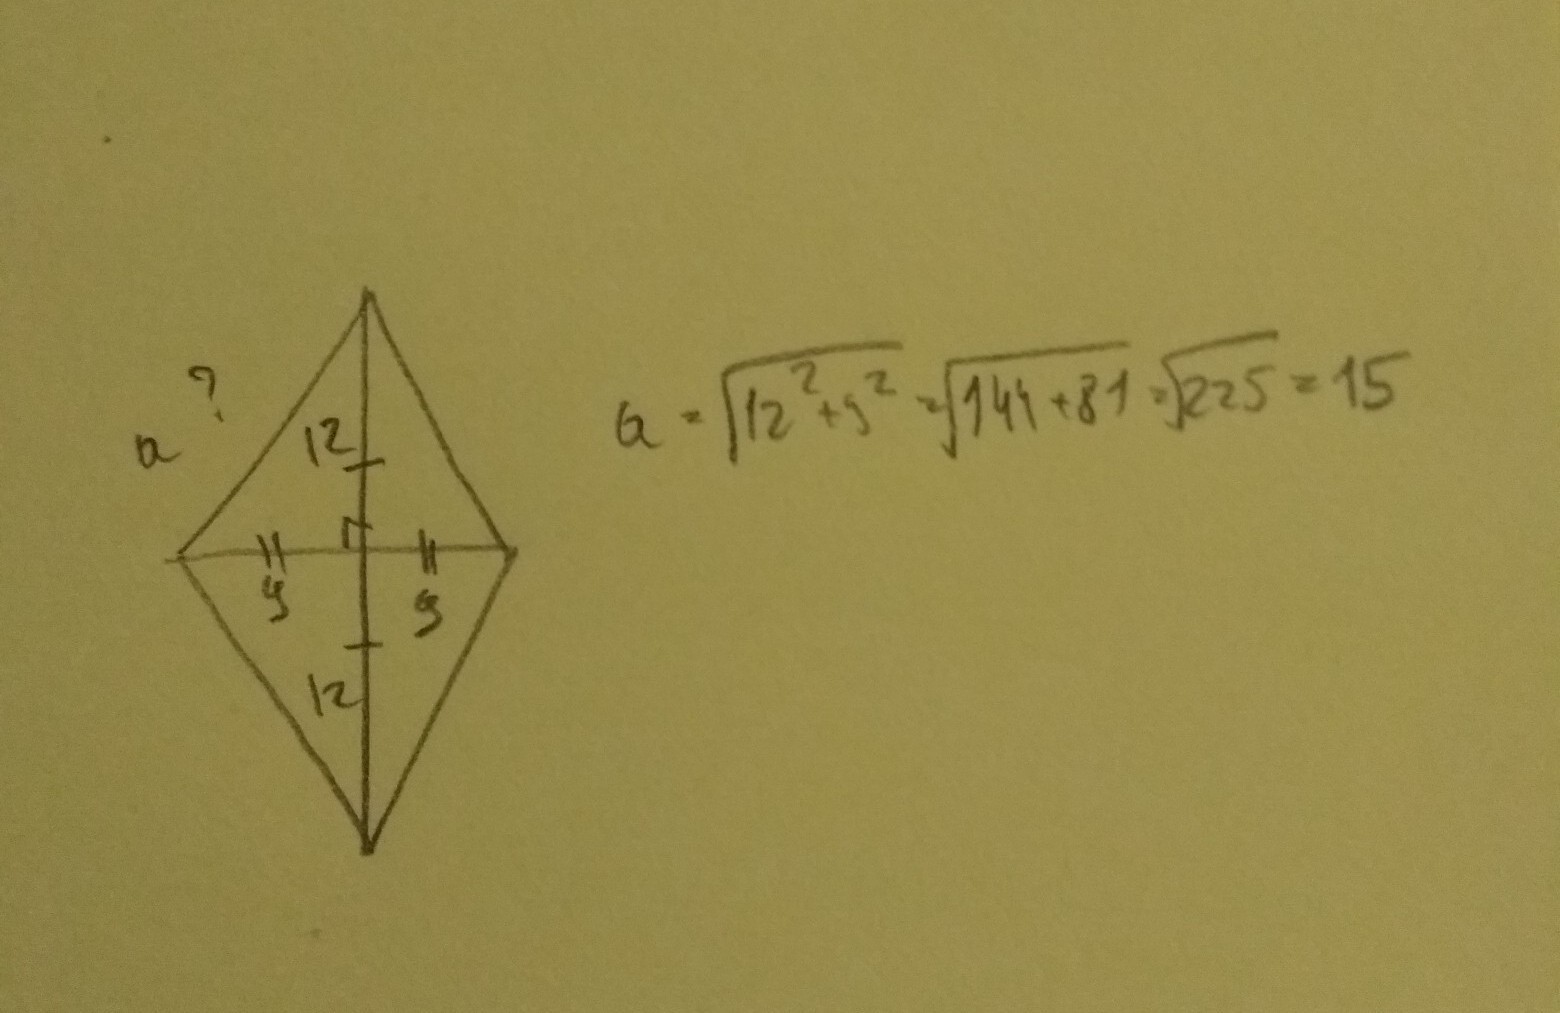 ?
a
12
9 9
12
a = √12² + 9² = √144 + 81 = √225 = 15